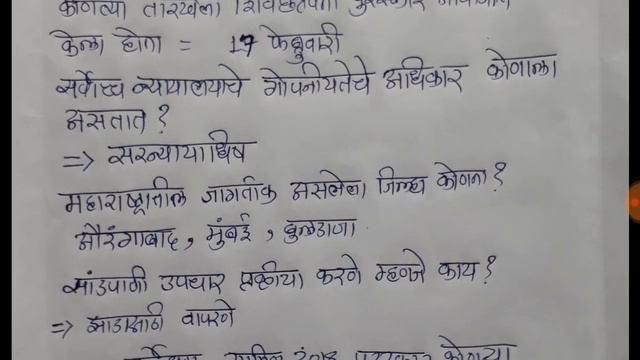 कोणत्या तारखेला शिवछत्रपती पुरस्कार
केला होता = 17 फेब्रुवारी
सर्वोच्च न्यायालयाचे गोपनीयतेचे अधिकार कोणाला
असतात ?
=> सरन्यायाधिष
महाराष्ट्रातील जागतीक असलेला जिल्हा कोणता ?
औरंगाबाद, मुंबई, बुलडाणा
सांडपाणी उपचार प्रक्रीया करणे म्हणजे काय ?
=> झाडासाठी वापरणे
पुरस्कार कोणत्या